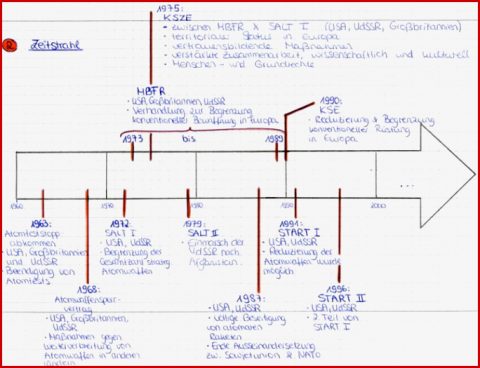 1975:
KSZE
- zwischen MBFR & SALT I (USA, UdSSR, Großbritannien)
- territoriale Status in Europa
- vertrauensbildende Maßnahmen
- verstärkte Zusammenarbeit, wissenschaftlich und kulturell
- Menschen- und Grundrechte
2 Zeitstrahl
MBFR
- USA, Großbritannien, UdSSR
- Verhandlung zur Begrenzung
konventioneller in Europa
1973 bis 1989
1990:
KSE
- Reduzierung & Begrenzung
konventioneller Rüstung
in Europa
1960 1970 1980 1990 2000 ...
1963:
Atomteststopp
abkommen
- USA, Großbritannien
und UdSSR
- Beendigung von
Atomtests
1968:
Atomwaffensperr-
vertrag
- USA, Großbritannien,
UdSSR
- Maßnahmen gegen
Weiterverbreitung von
Atomwaffen in anderen
Ländern
1972:
SALT I
- USA, UdSSR
- Begrenzung der
strateg.
Atomwaffen
1979:
SALT II
- Einmarsch der
UdSSR nach
Afghanistan
1987:
- USA, UdSSR
- völlige Beseitigung
von atomaren
Raketen
- Ende Auseinandersetzung
zw. Sowjetunion & NATO
1991:
START I
- USA, UdSSR
- Reduzierung der
Atomwaffen wurde
möglich
1996:
START II
- USA, UdSSR
- 2. Teil von
START I